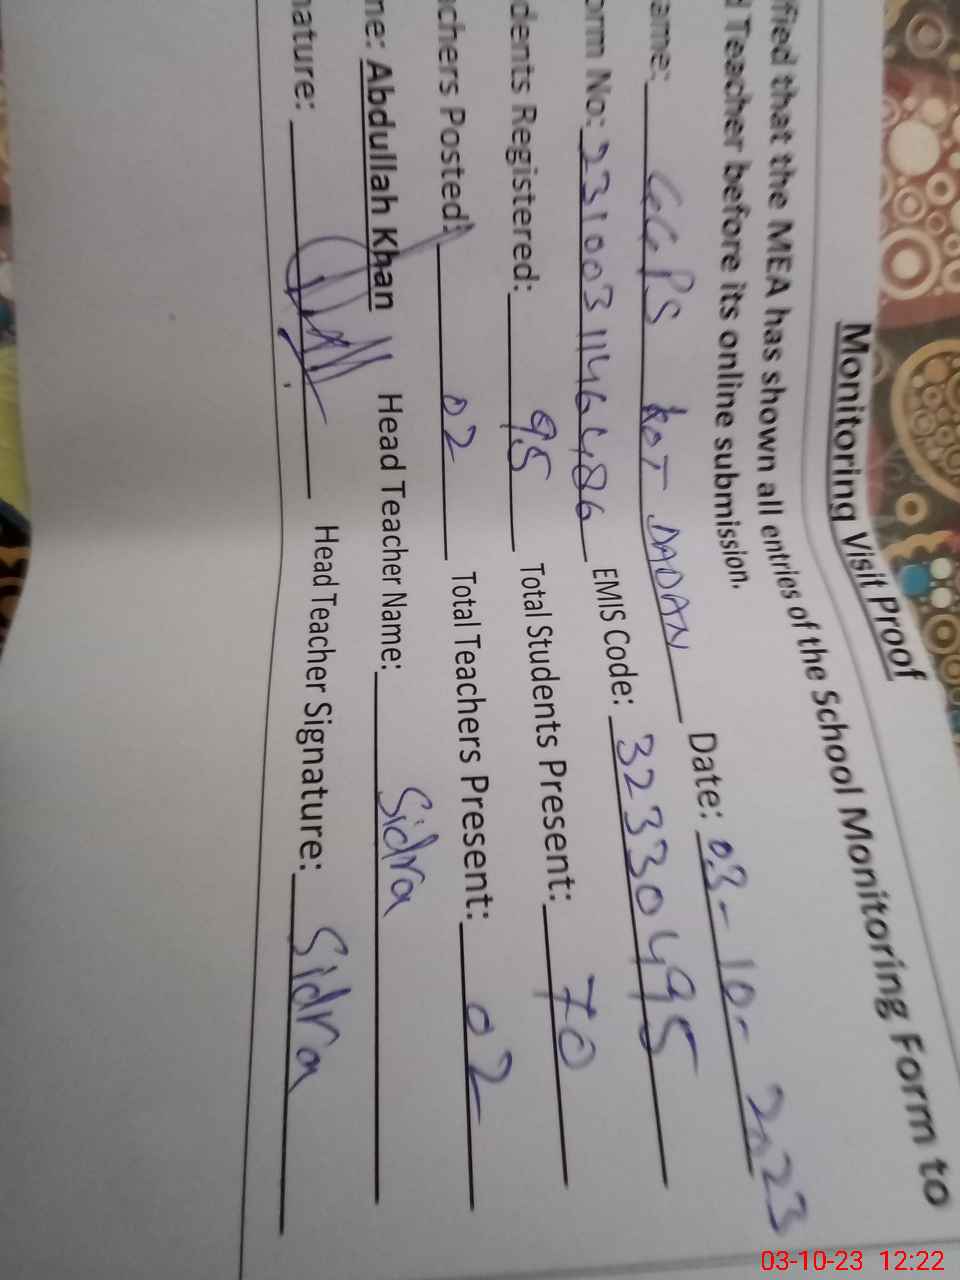 Monitoring Visit Proof
ified that the MEA has shown all entries of the School Monitoring Form to
d Teacher before its online submission.
ame: GGPS KOT DADAN Date: 03-10-2023
orm No: 2310031146486 EMIS Code: 32330495
dents Registered: 95 Total Students Present: 70
chers Posted: 02 Total Teachers Present: 02
me: Abdullah Khan Head Teacher Name: Sidra
nature: Head Teacher Signature: Sidra
03-10-23 12:22